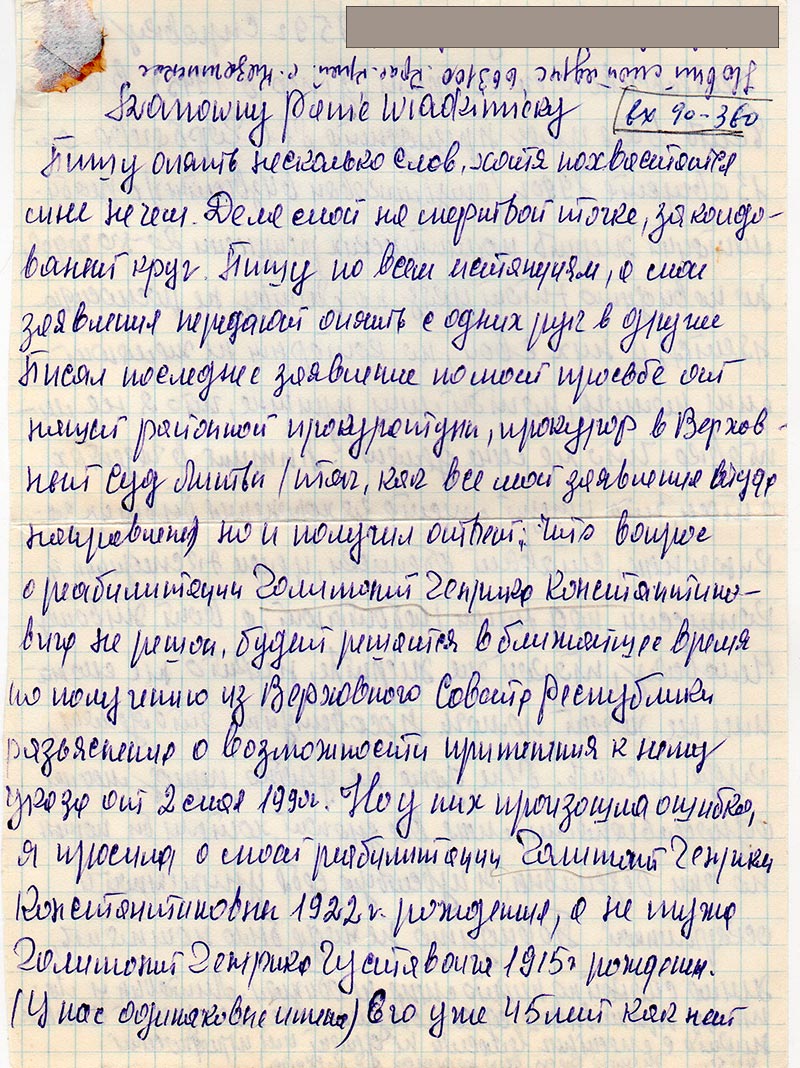 Новый мой адрес 663100 Крас. край. с. Казачинское
Szanowny Panie Wladimirsky
вх 90-360
Пишу опять несколько слов, хотя похвастатся
мне не чем. Дело моё на мертвой точке, заколдо-
ваный круг. Пишу по всем истанциям, а мои
заявления передают опять с одних рук в другие
Писал последнее заявление по моей просьбе от
нашей районной прокуратуры, прокурор в Верхов-
ный суд Литвы (так, как все мои заявления туда
направлены) но и получил ответ, что вопрос
о реабилитации Генрика Константино-
вича не решон, будет решатся в ближайшее время
по получению из Верховного Совета Республики
разьяснения о возможности применения к нему
указа от 2 мая 1990г. Но у них произошла ошибка,
я просила о моей реабилитации Генрики
Константиновны 1922 г. рождения, а не мужа
Генрика Густавовича 1915г рожден.
(У нас одинаковые имена) Его уже 45 лет как нет